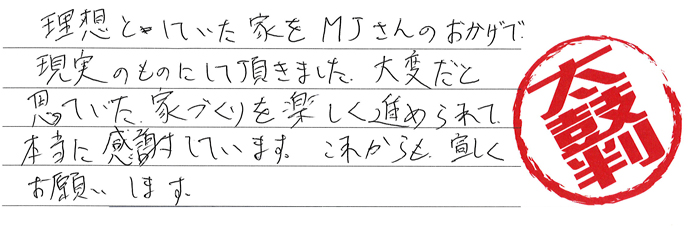 理想としていた家をMJさんのおかげで
現実のものにして頂きました。大変だと
思っていた家づくりを楽しく進められて、
本当に感謝しています。これからも、宜しく
お願いします。
太鼓判